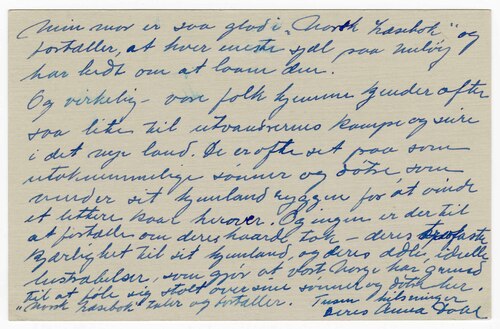 Min mor er saa glad i "Norsk Læsebok", og
fortæller, at hver eneste sjæl paa
har bedt om at laane den.
Og virkelig – vore folk hjemme kjender ofte
saa lite til utvandrernes kampe og seire
i det nye land. De er ofte set paa som
utaknemmelige sønner og døtre som
vender sit hjemland ryggen for at vinde
et lettere kaar herover. Og ingen er der til
at fortælle om deres haarde tak – deres
kjærlighet til sit hjemland, og deres ædle, ideelle
som gjør at vort Norge har grund
til at føle sig stolt over sine sønner og døtre her.
"Norsk Læsebok" taler og fortæller. Tusen hilsninger
Deres Anna Dahl